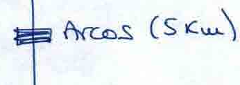 Arcos (5 Km)